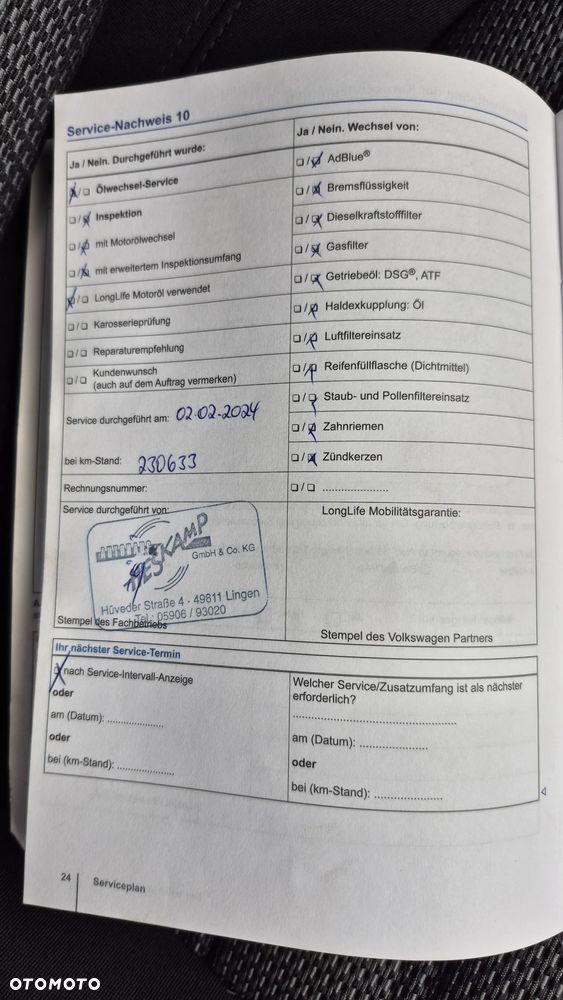 Service-Nachweis 10
Ja / Nein. Durchgeführt wurde:
☒/☐ Ölwechsel-Service
☐/☒ Inspektion
☐/☒ mit Motorölwechsel
☐/☒ mit erweitertem Inspektionsumfang
☒/☐ LongLife Motoröl verwendet
☐/☐ Karosserieprüfung
☐/☐ Reparaturempfehlung
☐/☐ Kundenwunsch
(auch auf dem Auftrag vermerken)
Service durchgeführt am: 02.02.2024
bei km-Stand: 230633
Rechnungsnummer:
Service durchgeführt von:
HESKAMP
GmbH & Co. KG
Hüveder Straße 4 - 49811 Lingen
Tel.: 05906 / 93020
Stempel des Fachbetriebs
Ja / Nein. Wechsel von:
☐/☒ AdBlue®
☐/☒ Bremsflüssigkeit
☐/☒ Dieselkraftstofffilter
☐/☒ Gasfilter
☐/☒ Getriebeöl: DSG®, ATF
☐/☒ Haldexkupplung: Öl
☐/☒ Luftfiltereinsatz
☐/☒ Reifenfüllflasche (Dichtmittel)
☐/☒ Staub- und Pollenfiltereinsatz
☐/☒ Zahnriemen
☐/☒ Zündkerzen
☐/☐ .....................
LongLife Mobilitätsgarantie:
Stempel des Volkswagen Partners
Ihr nächster Service-Termin
☒ nach Service-Intervall-Anzeige
oder
am (Datum): .....................
oder
bei (km-Stand): .....................
Welcher Service/Zusatzumfang ist als nächster
erforderlich?
.....................
am (Datum): .....................
oder
bei (km-Stand): .....................
24 Serviceplan
OTOMOTO